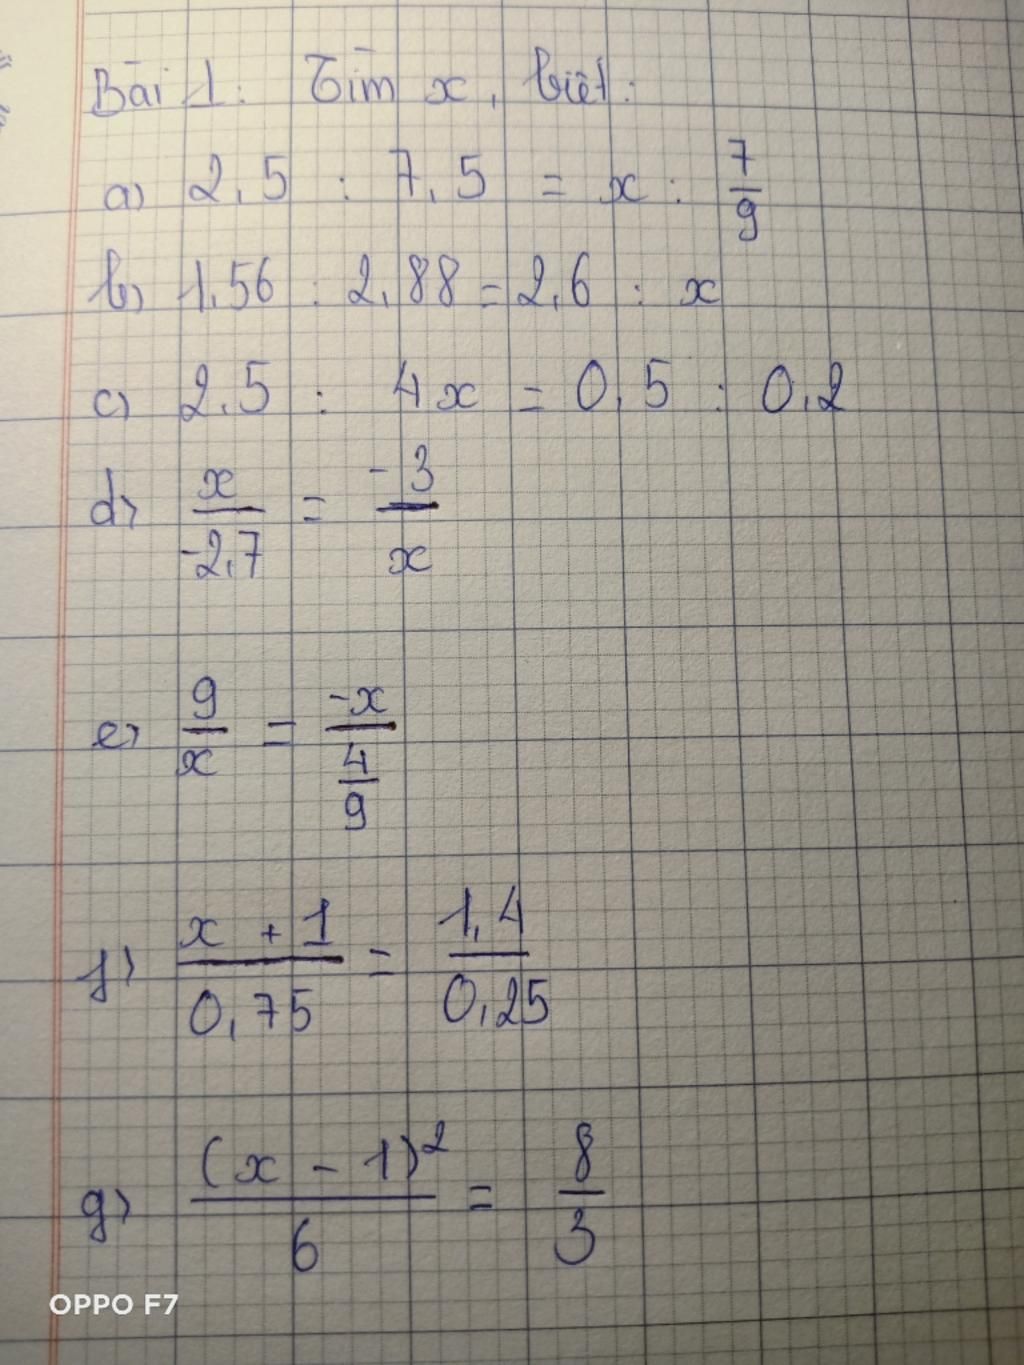 Bài 1: Tìm x, biết:
a) 2,5 : 7,5 = x : 7/9
b) 1,56 : 2,88 = 2,6 : x
c) 2,5 : 4x = 0,5 : 0,2
d) x/-2,7 = -3/x
e) 9/x = -x/(4/9)
f) x + 1/0,75 = 1,4/0,25
g) (x - 1)²/6 = 8/3
OPPO F7